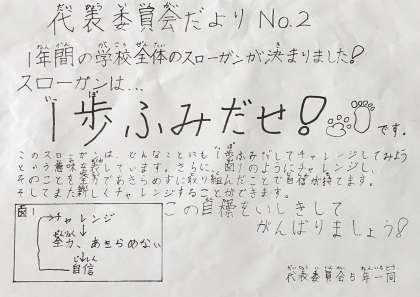 代表委員会だより No.2
1年間の学校全体のスローガンが決まりました!
スローガンは…
1歩ふみだせ! です。
このスローガンは、どんなことにも1歩ふみだしてチャレンジしてみよう
という意味を表しています。さらに、図1のようにチャレンジし、
そのことを全力であきらめずに取り組んだことで自信が持てます。
そしてまた新しくチャレンジすることができます。
この目標をいしきして
がんばりましょう!
図1
チャレンジ
全力、あきらめない
自信
代表委員会5年一同